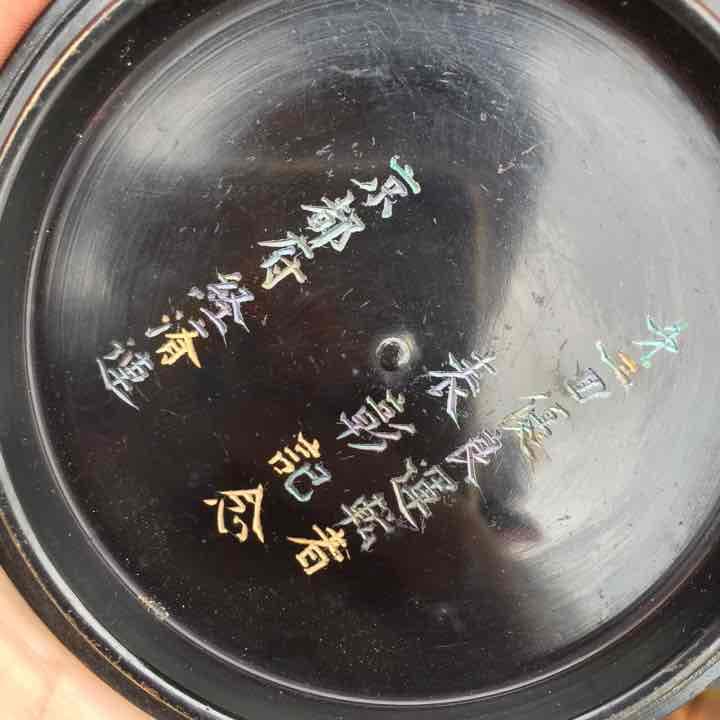 第三回優良運転者
表彰記念
京都府経済連